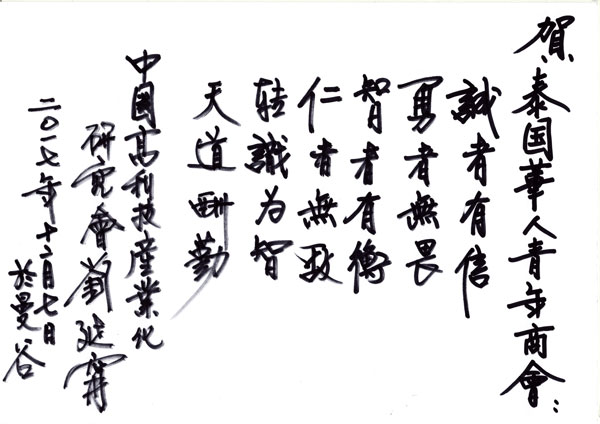 賀泰国華人青年商會：
誠者有信
勇者無畏
智者有衡
仁者無敌
轉識为智
天道酬勤
中國高科技産業化
研究會劉延寗
二〇一七年十二月七日
於曼谷